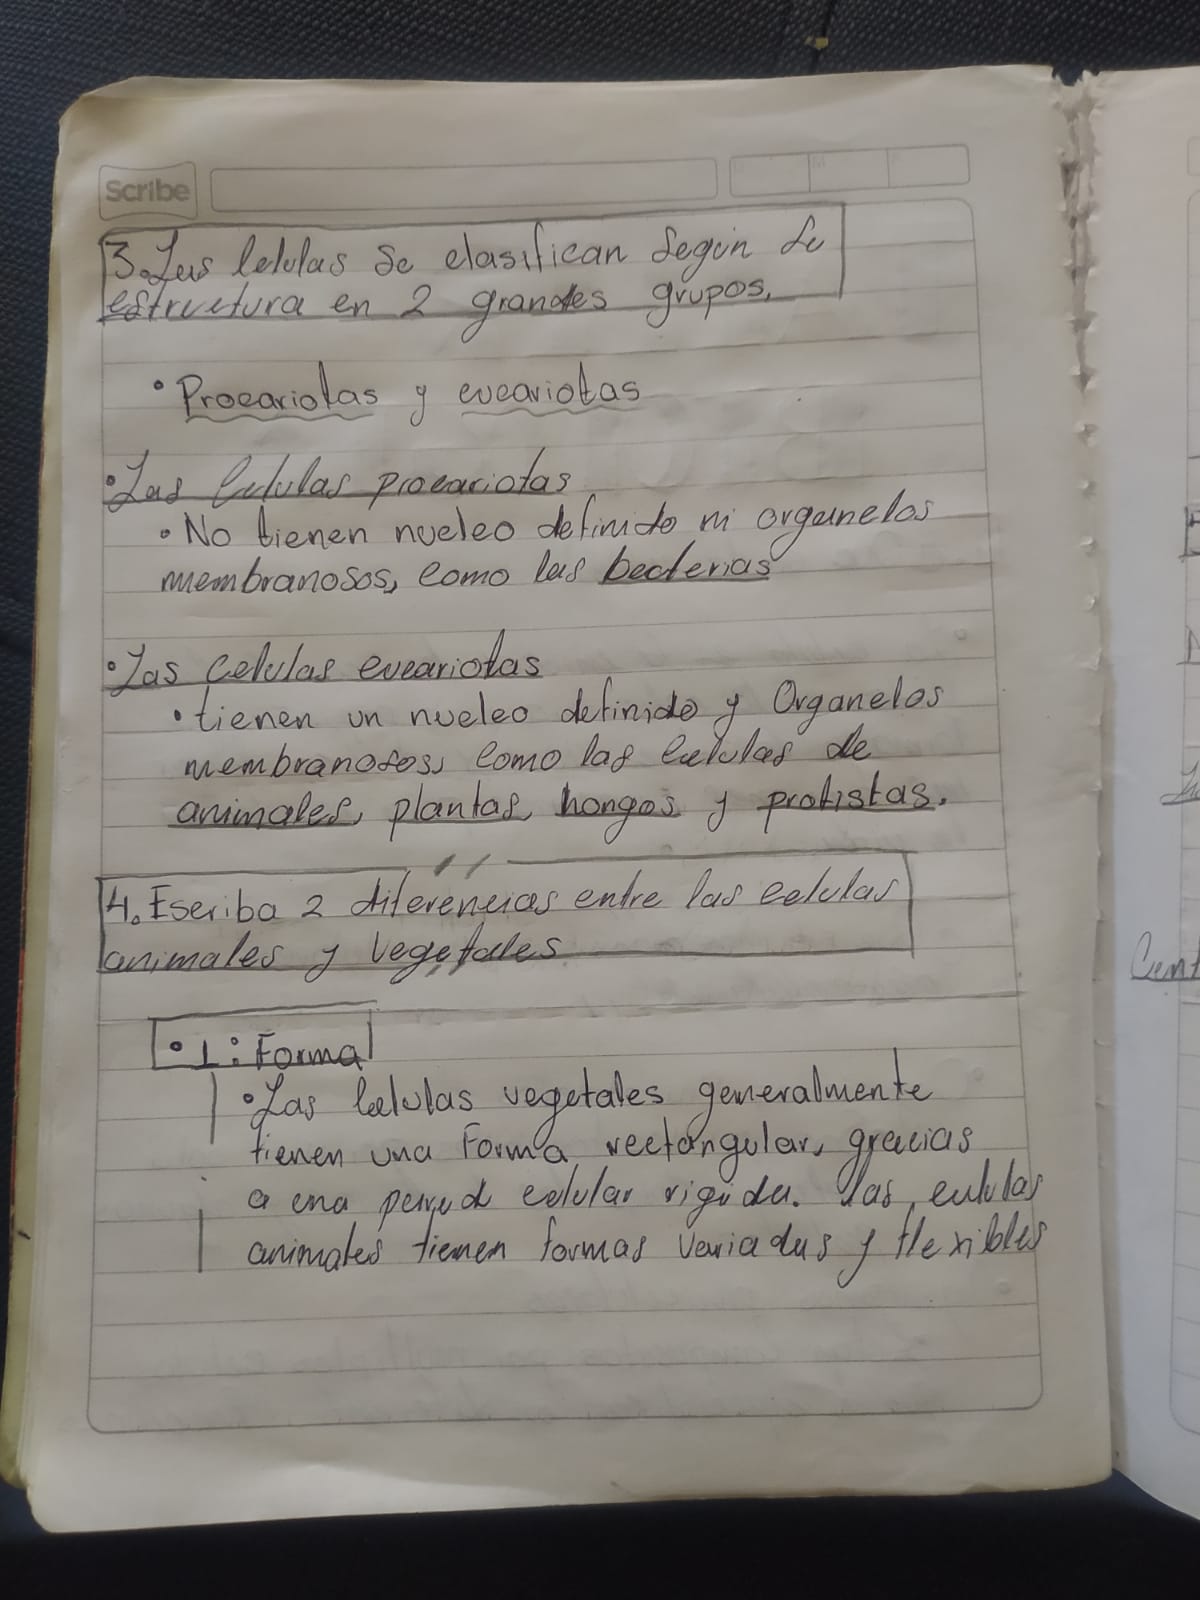 Scribe
3. Las Celulas se clasifican según su
estructura en 2 grandes grupos.
• Procariotas y eucariotas
• Las Celulas procariotas
• No tienen nucleo definido ni organelos
membranosos, como las bacterias
• Las Celulas eucariotas
• tienen un nucleo definido y Organelos
membranosos, como las celulas de
animales, plantas, hongos y protistas.
4. Escriba 2 diferencias entre las celulas
animales y vegetales
• 1: Forma
• Las Celulas vegetales generalmente
tienen una Forma rectangular, gracias
a una pared celular rigida. Las celulas
animales tienen formas variadas y flexibles
Cent